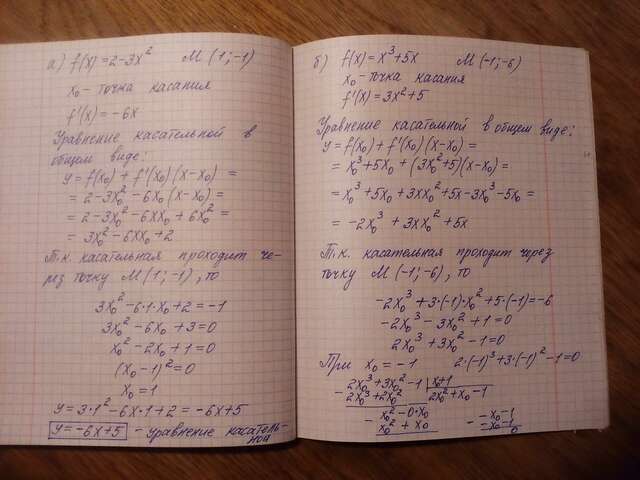 а) f(x) = 2 - 3x² M (1; -1)
x₀ - точка касания
f'(x) = - 6x
Уравнение касательной в
общем виде:
y = f(x₀) + f'(x₀)(x - x₀) =
= 2 - 3x₀² - 6x₀(x - x₀) =
= 2 - 3x₀² - 6xx₀ + 6x₀² =
= 3x₀² - 6xx₀ + 2
Т.к. касательная проходит че-
рез точку M (1; -1), то
3x₀² - 6·1·x₀ + 2 = -1
3x₀² - 6x₀ + 3 = 0
x₀² - 2x₀ + 1 = 0
(x₀ - 1)² = 0
x₀ = 1
y = 3·1² - 6x·1 + 2 = -6x + 5
y = -6x + 5 - уравнение касатель-
ной
б) f(x) = x³ + 5x M (-1; -6)
x₀ - точка касания
f'(x) = 3x² + 5
Уравнение касательной в общем виде:
y = f(x₀) + f'(x₀)(x - x₀) =
= x₀³ + 5x₀ + (3x₀² + 5)(x - x₀) =
= x₀³ + 5x₀ + 3xx₀² + 5x - 3x₀³ - 5x₀ =
= -2x₀³ + 3xx₀² + 5x
Т.к. касательная проходит через
точку M (-1; -6), то
-2x₀³ + 3·(-1)·x₀² + 5·(-1) = -6
-2x₀³ - 3x₀² + 1 = 0
2x₀³ + 3x₀² - 1 = 0
При x₀ = -1 2·(-1)³ + 3·(-1)² - 1 = 0
2x₀³ + 3x₀² - 1 x₀ + 1
- 2x₀³ + 2x₀² 2x₀² + x₀ - 1
x₀² - 0·x₀ - -x₀ - 1
- x₀² + x₀ -x₀ - 1
0